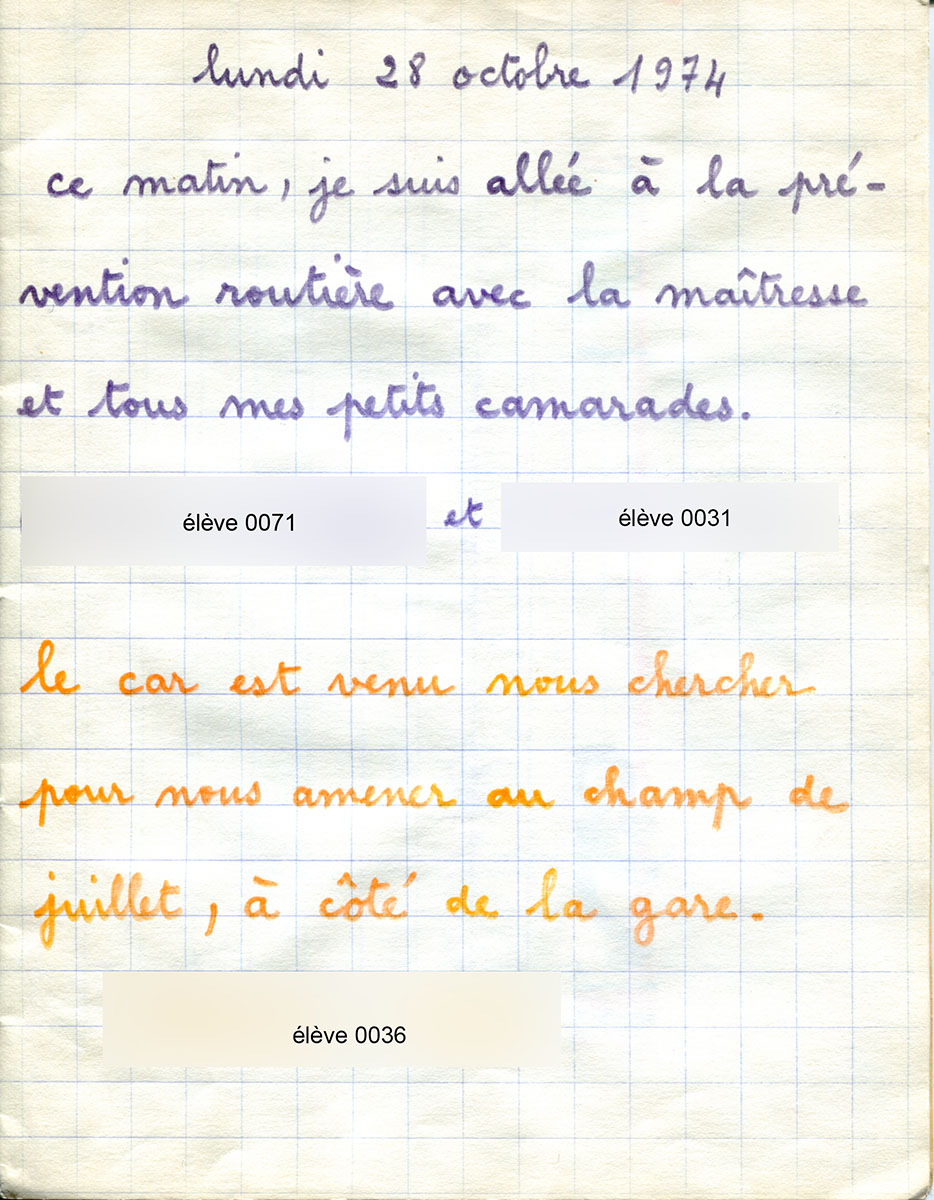 lundi 28 octobre 1974
ce matin, je suis allée à la pré-
vention routière avec la maîtresse
et tous mes petits camarades.
élève 0071 et élève 0031
le car est venu nous chercher
pour nous amener au champ de
juillet, à côté de la gare.
élève 0036